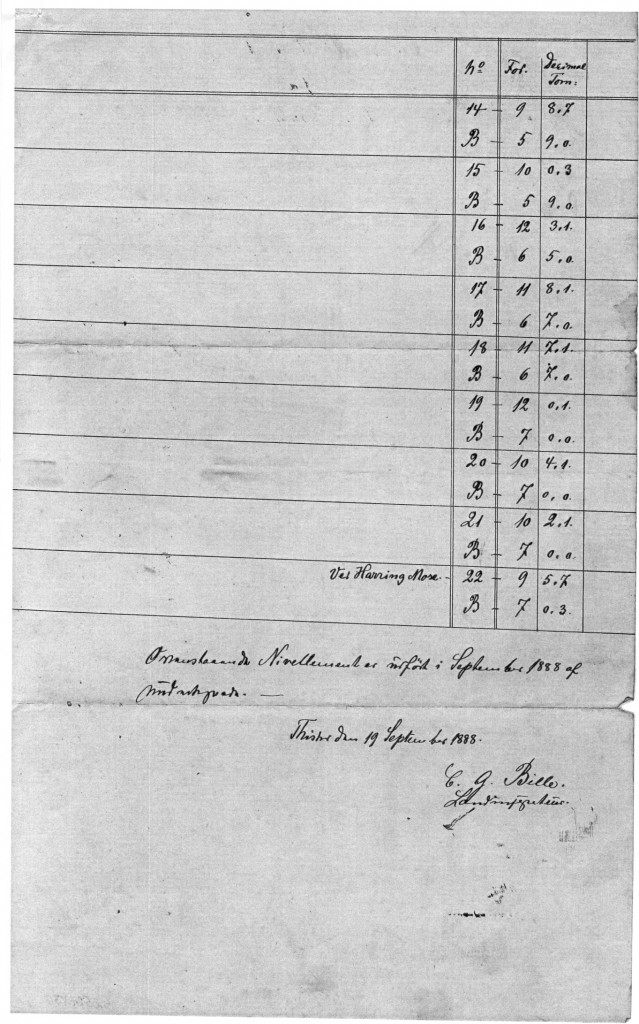 No Fod. Decimal
Tom:
14 - 9 8.7
B - 5 9.0
15 - 10 0.3
B - 5 9.0
16 - 12 3.1.
B - 6 5.0
17 - 11 8.1.
B - 6 7.0
18 - 11 7.1.
B - 6 7.0
19 - 12 0.1.
B - 7 0.0.
20 - 10 4.1.
B - 7 0.0.
21 - 10 2.1.
B - 7 0.0.
Ved Harring Mose. - 22 - 9 5.7
B - 7 0.3.
Ovenstaaende Nivellement er udført i September 1888 af
undertegnede. —
Thisted den 19 September 1888.
C. G. Bille.
Landinspecteur.